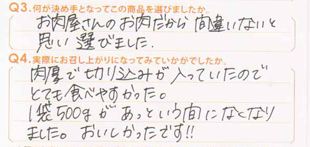 Q3.何が決め手となってこの商品を選びましたか。
お肉屋さんのお肉だから間違いないと
思い選びました.
Q4.実際にお召し上がりになってみていかがでしたか。
肉厚で切り込みが入っていたので
とても食べやすかった。
1袋500gがあっという間になくなり
ました。おいしかったです!!